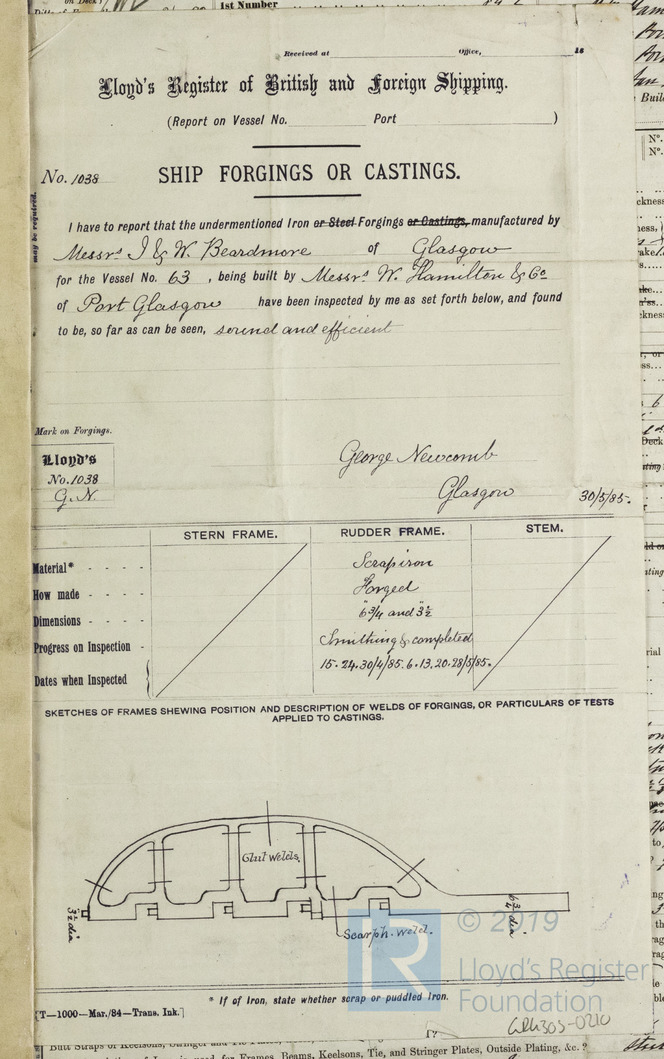 1st Number
Received at Office, 18
Lloyd's Register of British and Foreign Shipping.
(Report on Vessel No. Port )
No. 1038 SHIP FORGINGS OR CASTINGS.
may be required.
I have to report that the undermentioned Iron or Steel Forgings or Castings, manufactured by
Messrs I & W. Beardmore of Glasgow
for the Vessel No. 63 , being built by Messrs W. Hamilton & Co
of Port Glasgow have been inspected by me as set forth below, and found
to be, so far as can be seen, sound and efficient
Mark on Forgings.
Lloyd's
No. 1038
G. N.
George Newcomb
Glasgow 30/5/85.
STERN FRAME. RUDDER FRAME. STEM.
Material* - - - - Scrap iron
How made - - - - Forged
Dimensions - - - - 6¾" and 3½"
Progress on Inspection - Smithing & completed
Dates when Inspected 15. 24. 30/4/85. 6. 13. 20. 28/5/85.
SKETCHES OF FRAMES SHEWING POSITION AND DESCRIPTION OF WELDS OF FORGINGS, OR PARTICULARS OF TESTS
APPLIED TO CASTINGS.
Glut Welds.
3½ dia
6¾ dia
Scarph. Weld.
© 2019
Lloyd's Register
Foundation
* If of Iron, state whether scrap or puddled Iron.
[T—1000—Mar./84—Trans. Ink.]
LRF303-0210
Frames, Beams, Keelsons, Tie, and Stringer Plates, Outside Plating, &c. ?